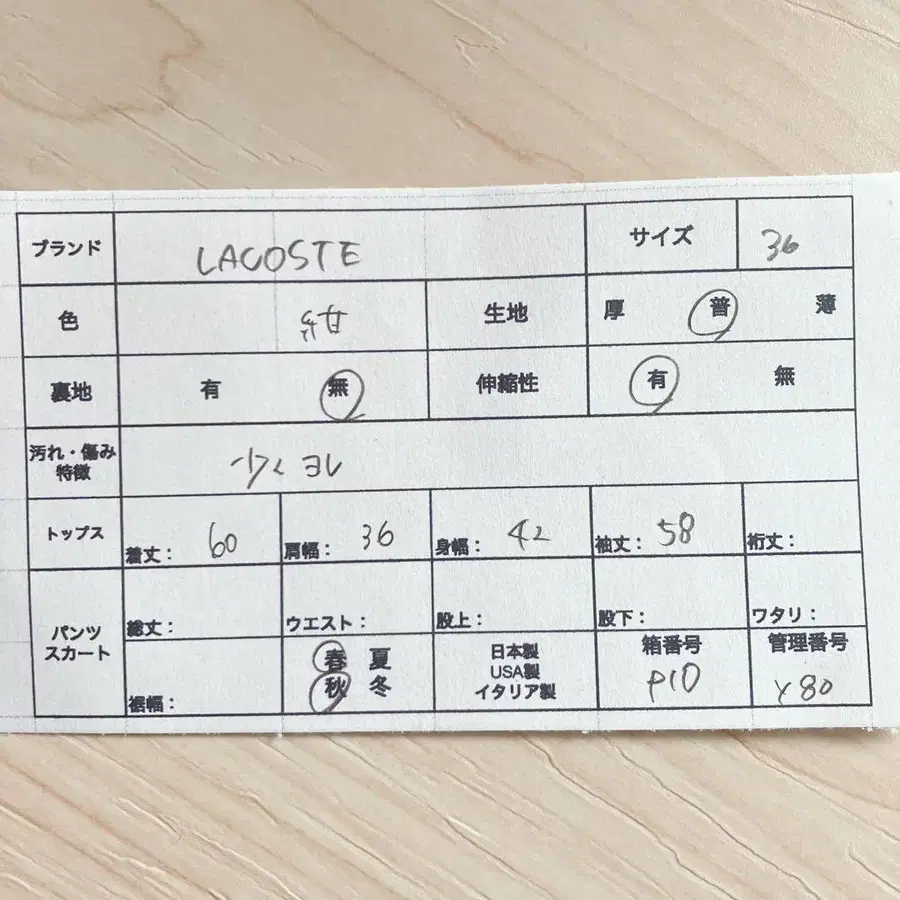 ブランド LACOSTE サイズ 36
色 紺 生地 厚 普 薄
裏地 有 無 伸縮性 有 無
汚れ・傷み
特徴 少々ヨレ
トップス 着丈: 60 肩幅: 36 身幅: 42 袖丈: 58 裄丈:
パンツ
スカート
総丈: ウエスト: 股上: 股下: ワタリ:
裾幅:
春 夏
秋 冬
日本製
USA製
イタリア製
箱番号
P10
管理番号
Y80